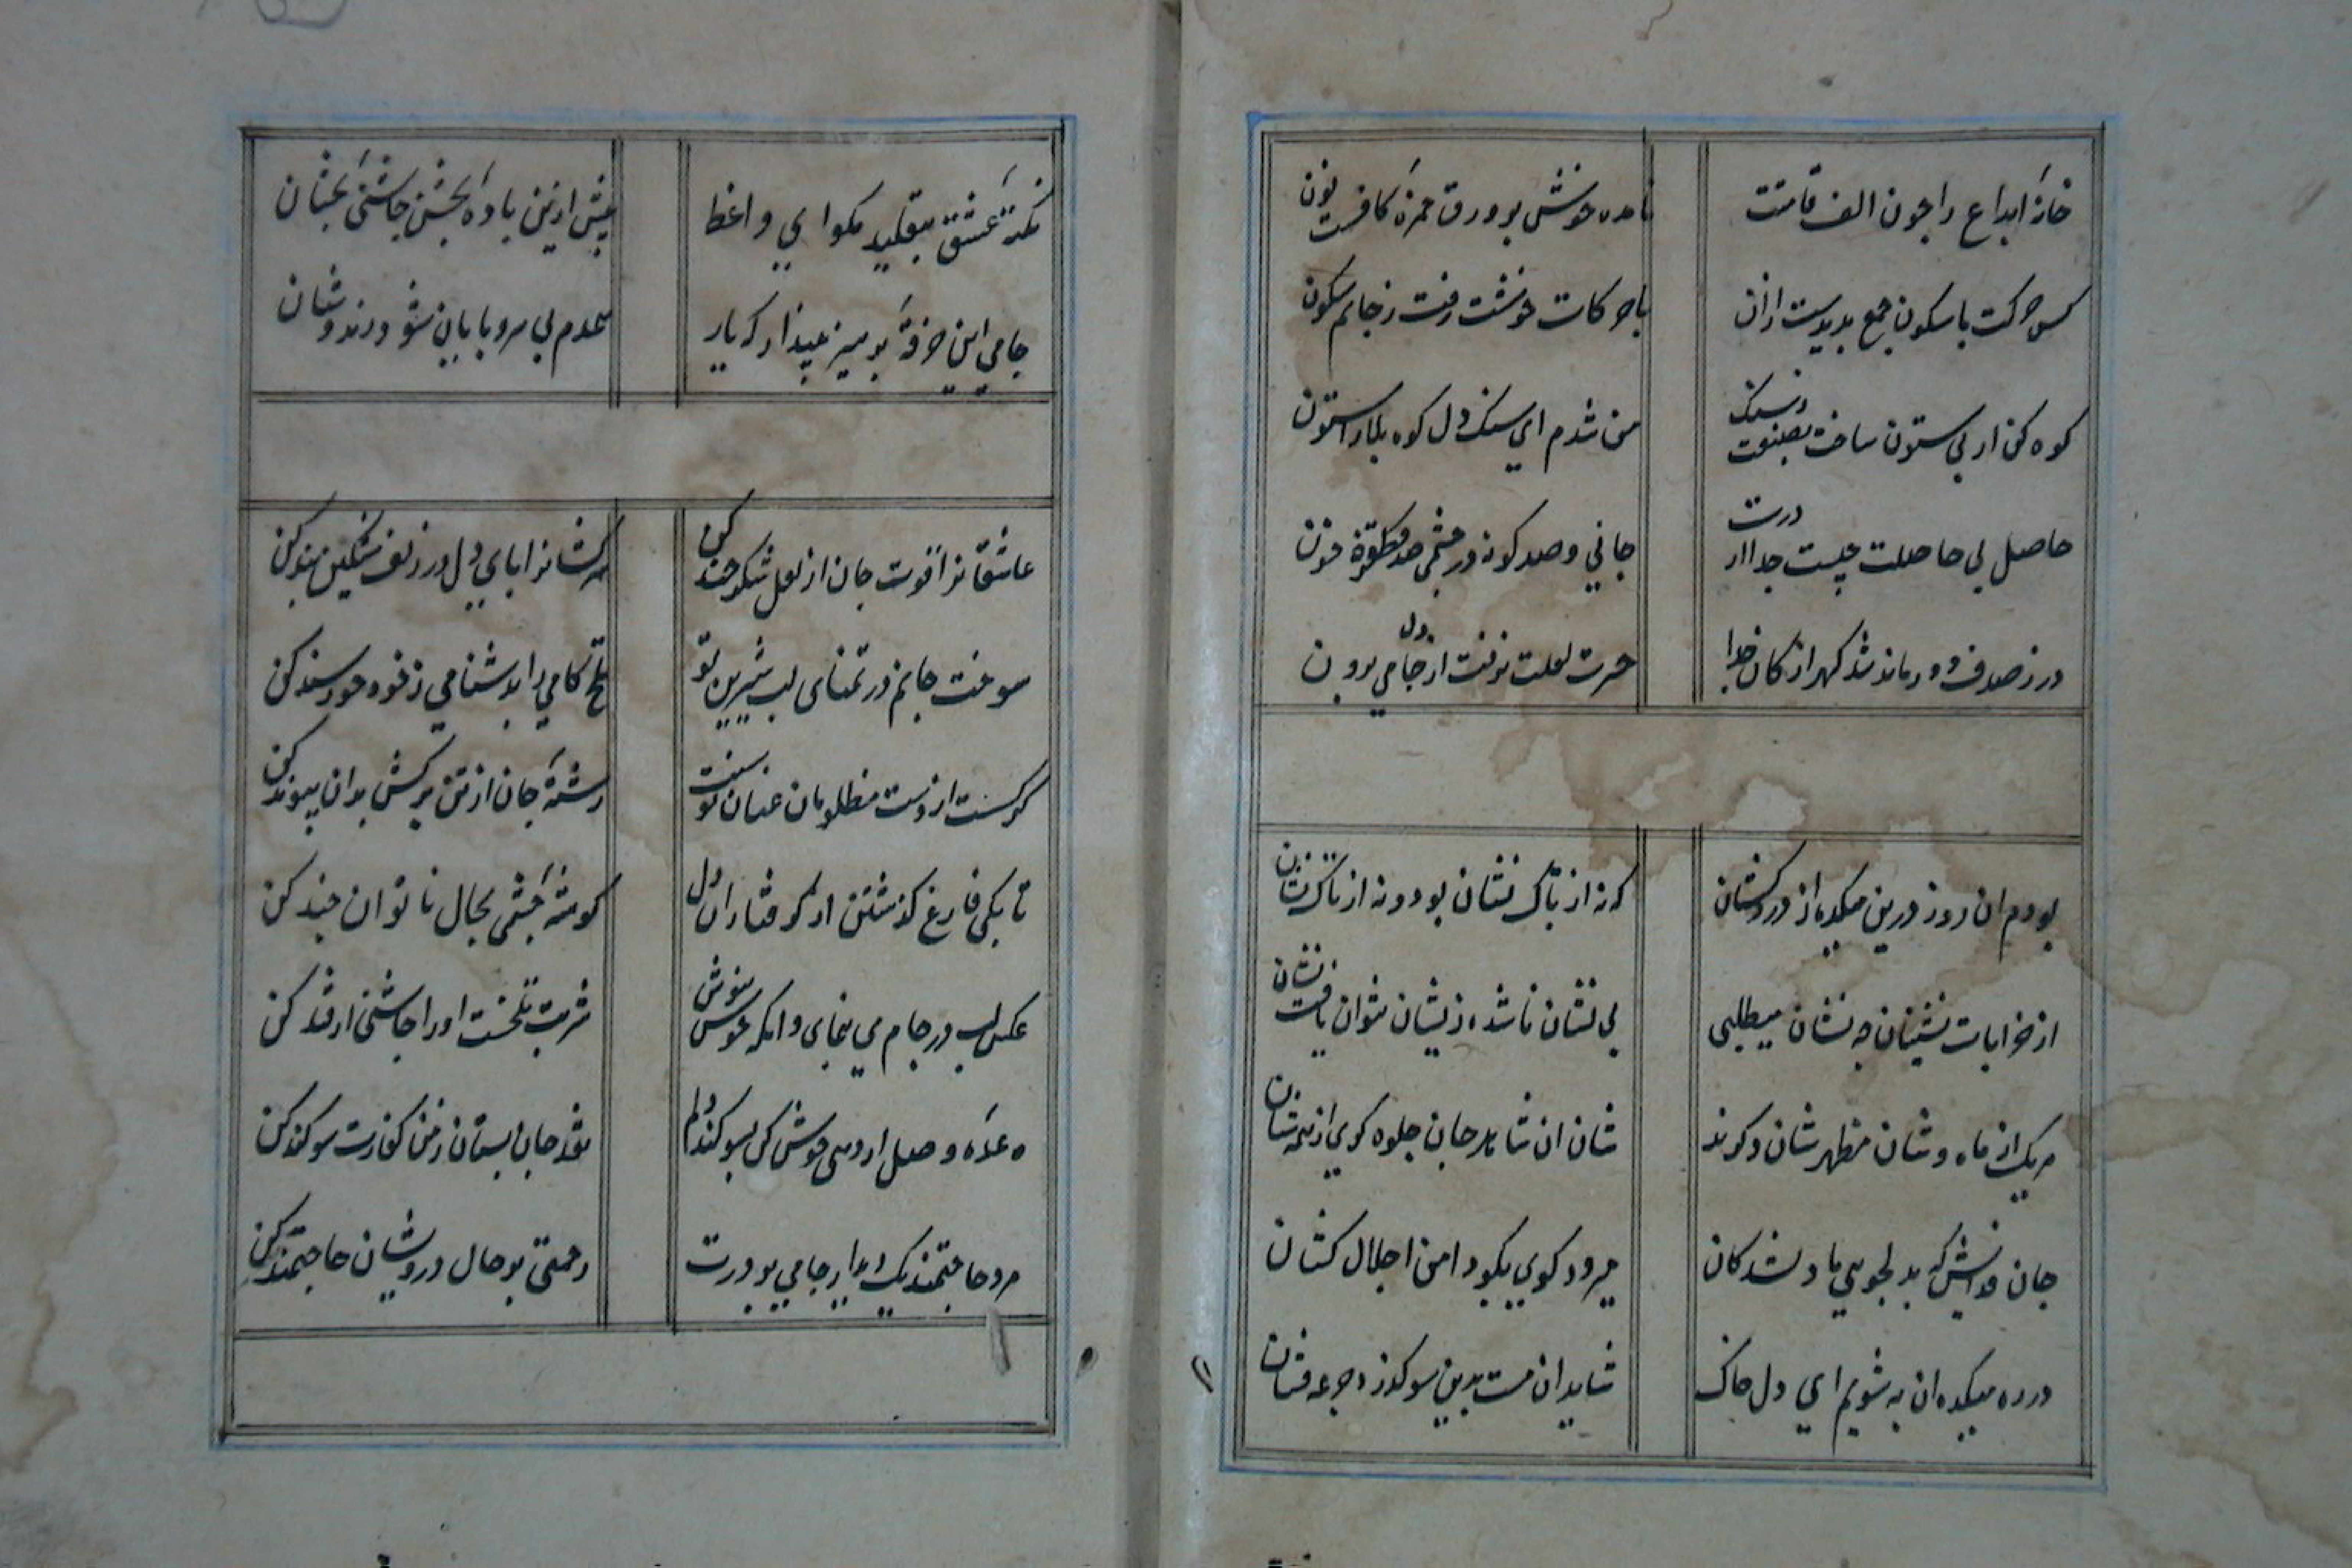 خامهٔ ابداع را چون الف قامتت نامده خوش بر ورق حمزهٔ کاف و نون
کس حرکت با سکون جمع ندیدست ازان با حرکات خوشت رفت ز جانم سکون
کوه کن ار بی ستون ساخت بصنعت ز سنک من شدم ای سنک دل کوه بلا را ستون
حاصل بی حاصلت چیست جدا از درت جانی و صد کونه در چشمی و صد قطره خون
در ز صدف دور ماند شد کهر از کان جدا حسرت لعلت نرفت از دل جامی برون
بودم ان روز درین میکده از دردکشان که نه از تاک نشان بود و نه از تاک نشان
از خرابات نشینان چه نشان میطلبی بی نشان ناشده زیشان نتوان یافت نشان
هر یک از ماه وشان مظهر شان دکرند شان ان شاهد جان جلوه کری از همه شان
جان فدایش که بدلجویی ما دلشدکان میرود کوی بکو دامن اجلال کشان
در ره میکده ان به شویم ای دل خاک شاید ان مست بدین سو کذرد جرعه فشان
نکتهٔ عشق بتقلید مکو ای واعظ پیش ازین باده بچش چاشنی بچشان
جامی این خرقهٔ پرهیز بینداز که یار همدم بی سر و پایان شود و رندوشان
عاشقانرا قوت جان از لعل شکرخند کن سرکشانرا پای دل در زلف مشکین بند کن
سوخت جانم در تمنای لب شیرین تو تلخ کامی را بدشنامی ز خود خورسند کن
کر کسست از دست مظلومان عنان توسنت رشتهٔ جان از تن برکش بدان پیوند کن
تا بکی فارغ کذشتن از کرفتاران دل کوشهٔ چشمی بحال ناتوان چند کن
عکس لب در جام می بنمای وانکه خوش بنوش شربت تلخست او را چاشنی از قند کن
وعدهٔ وصل ار دهی خوش کن بسوکند دلم نقد جان بستان ز من کفارت سوکند کن
مرد حاجتمند یک دیدار جامی بر درت رحمتی بر حال درویشان حاجتمند کن